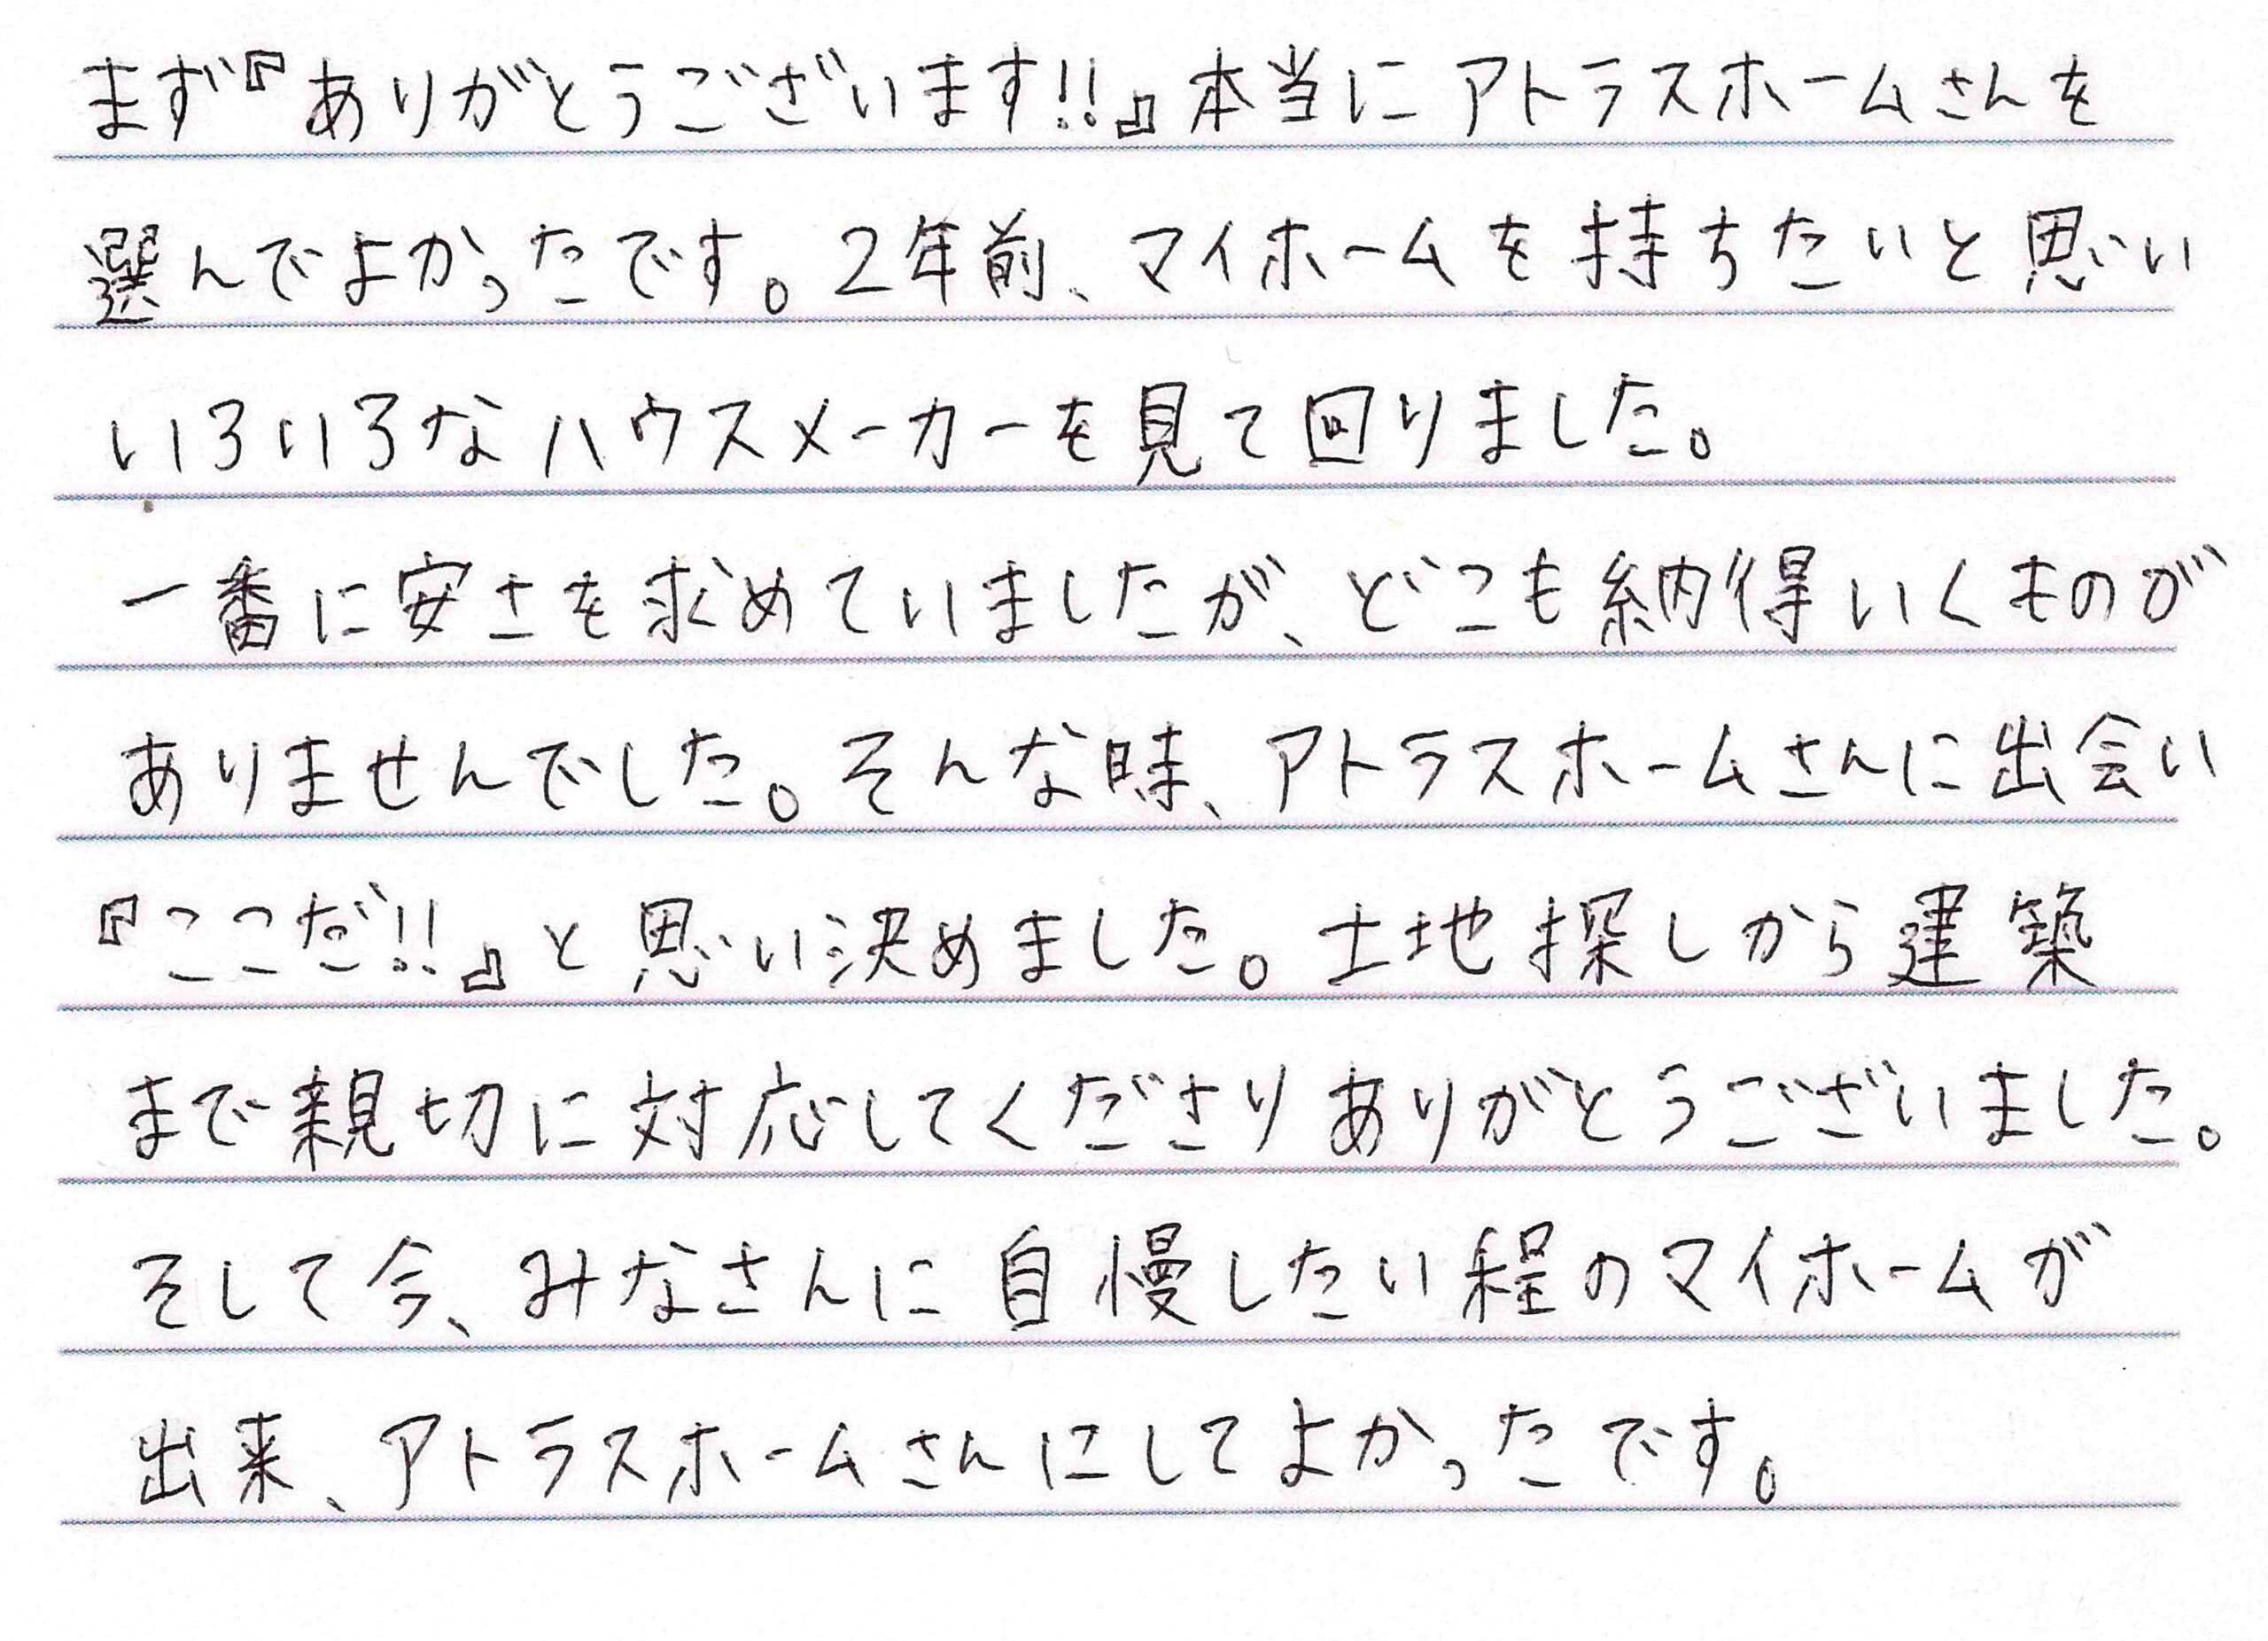 まず『ありがとうございます!!』本当にアトラスホームさんを
選んでよかったです。2年前、マイホームを持ちたいと思い
いろいろなハウスメーカーを見て回りました。
一番に安さを求めていましたが、どこも納得いくものが
ありませんでした。そんな時、アトラスホームさんに出会い
『ここだ!!』と思い決めました。土地探しから建築
まで親切に対応してくださりありがとうございました。
そして今、みなさんに自慢したい程のマイホームが
出来、アトラスホームさんにしてよかったです。